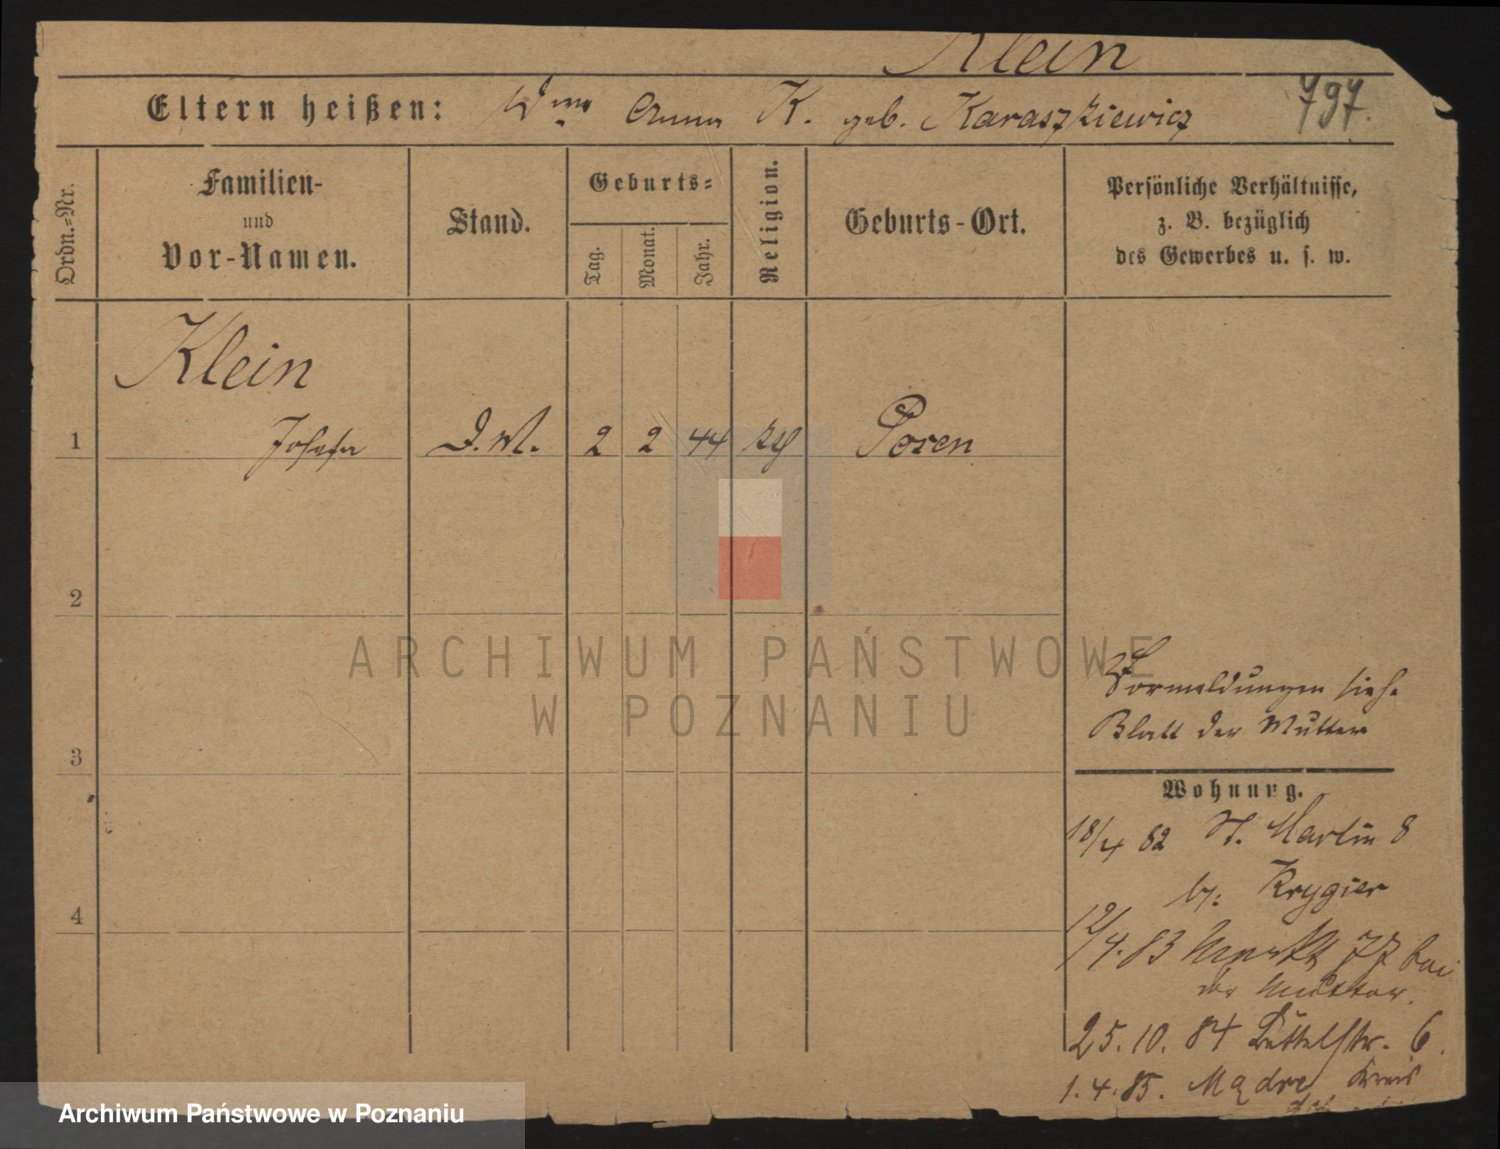 Klein
Eltern heißen: Wwe Anna K. geb. Karaszkiewicz 797.
Ordn.-Nr.
Familien-
und
Vor-Namen.
Stand.
Geburts-
Tag.
Monat.
Jahr.
Religion.
Geburts-Ort.
Persönliche Verhältnisse,
z. B. bezüglich
des Gewerbes u. s. w.
Klein
1 Josefa D.M. 2 2 44 kth Posen
2
3
4
Vormeldungen siehe
Blatt der Mutter
Wohnung.
18/4 82 St. Martin 8
by: Krygier
12/4.83 Markt 77 bei
der Mutter.
25.10.84 Büttelstr. 6.
1.4.85. Mądre Kreis
ARCHIWUM PAŃSTWOWE
W POZNANIU
Archiwum Państwowe w Poznaniu